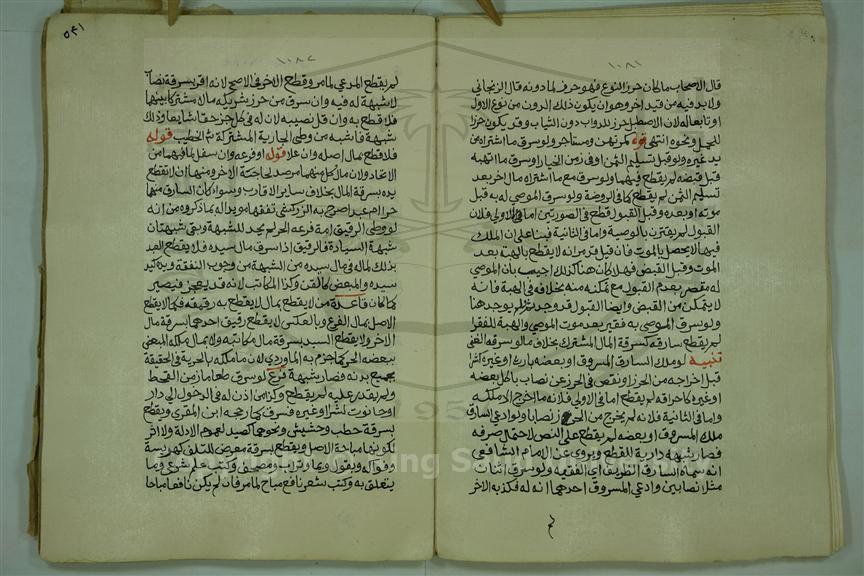 ١٠٨١
قال الاصحاب ما كان حرز النوع فهو حرز لما دونه قال الزنجاني
ولا بد فيه من قيد اخر وهو ان يكون ذلك الدون من نوع الاول
او تابعا له لان الاصطبل حرز للدواب دون الثياب وقد يكون حرزا
للجمل ونحوه انتهى قوله كمرتهن ومستاجر ولو سرق ما اشتراه من
يد غيره ولو قبل تسليم الثمن او في زمن الخيار او سرق ما اتهبه
قبل قبضه لم يقطع فيهما ولو سرق مع ما اشتراه مال اخر بعد
تسليم الثمن لم يقطع كما في الروضة ولو سرق الموصى له به قبل
موته او بعده وقبل القبول قطع في الصورتين اما في الاولى فلان
القبول لم يقترن بالوصية واما في الثانية فبناء على ان الملك
فيها لا يحصل بالموت فان قيل قد مر انه لا يقطع بالهبة بعد
الموت وقبل القبض فهلا كان هنا كذلك اجيب بان الموصى
له مقصر بعدم القبول مع تمكنه منه بخلافه في الهبة فانه
لا يتمكن من القبض وايضا القبول قد وجد ثم ولم يوجد هنا
ولو سرق الموصى به فقير بعد موت الموصي والهبة للفقرا
لم يقطع سارقه كسرقة المال المشترك بخلاف ما لو سرقه الغني
تنبيه لو ملك السارق المسروق او بعضه بارث او غيره كشرا
قبل اخراجه من الحرز او نقص في الحرز عن نصاب باكل بعضه
او غيره كاحراقه لم يقطع اما في الاولى فلانه ما اخرج الا ملكه
واما في الثانية فلانه لم يخرج من الحرز نصابا ولو ادعى السارق
ملك المسروق او بعضه لم يقطع على النص لاحتمال صدقه
فصار شبهة دارية للقطع ويروى عن الامام الشافعي
انه سماه السارق الظريف اي الفقيه ولو سرق اثنان
مثلا نصابين وادعى المسروق احدهما انه له فكذبه الاخر
لم
٥٤١
١٠٨٢
لم يقطع المدعي لما مر وقطع الاخر في الاصح لانه اقر بسرقة نصاب
لا شبهة له فيه وان سرق من حرز شريكه مال مشتركا بينهما
فلا قطع به وان قل نصيبه لان له في كل جزء حقا شايعا وذلك
شبهة فاشبه من وطي الجارية المشتركة ش الخطيب قوله
فلا قطع بمال اصله وان علا قوله او فرعه وان سفل لما بينهما من
الاتحاد ولان مال كل منهما مرصد لحاجة الاخر ومنها ان لا تقطع
يده بسرقة المال بخلاف ساير الاقارب وسواء كان السارق منهما
حرا ام عبدا صرح به الزركشي تفقها مويدا له بما ذكروه من انه
لو وطي الرقيق امة فرعه الحر لم يحد للشبهة وبقي شبهتان
شبهة السيادة فالرقيق اذا سرق مال سيده فلا يقطع العبد
بذلك لماله في مال سيده من الشبهة من وجوب النفقة ويده كيد
سيده والمبعض كالقن وكذا المكاتب لانه قد يعجز فيصير
كما كان قاعدة من لا يقطع بمال لا يقطع به رقيقه فكما لا يقطع
الاصل بمال الفرع وبالعكس لا يقطع رقيق احدهما بسرقة مال
الاخر ولا يقطع السيد بسرقة مال مكاتبه ولا بمال ملكه المبعض
ببعضه الحر كما جزم به الماوردي لان ما ملكه بالحرية في الحقيقة
بجميع بدنه فصار شبهة فرع لو سرق طعاما زمن القحط
ولم يقدر عليه لم يقطع وكذا من اذن له في الدخول الى دار
او حانوت لشراء او غيره فسرق كما رجحه ابن المقري ويقطع
بسرقة حطب وحشيش ونحوهما كصيد لعموم الادلة ولا اثر
لكونها مباحة الاصل ويقطع بسرقة معرض للتلف كهريسة
وفواكه وبقول وبماء وتراب ومصحف وكتب علم شرعي وما
يتعلق به وكتب شعر نافع مباح لما مر فان لم يكن نافعا مباحا